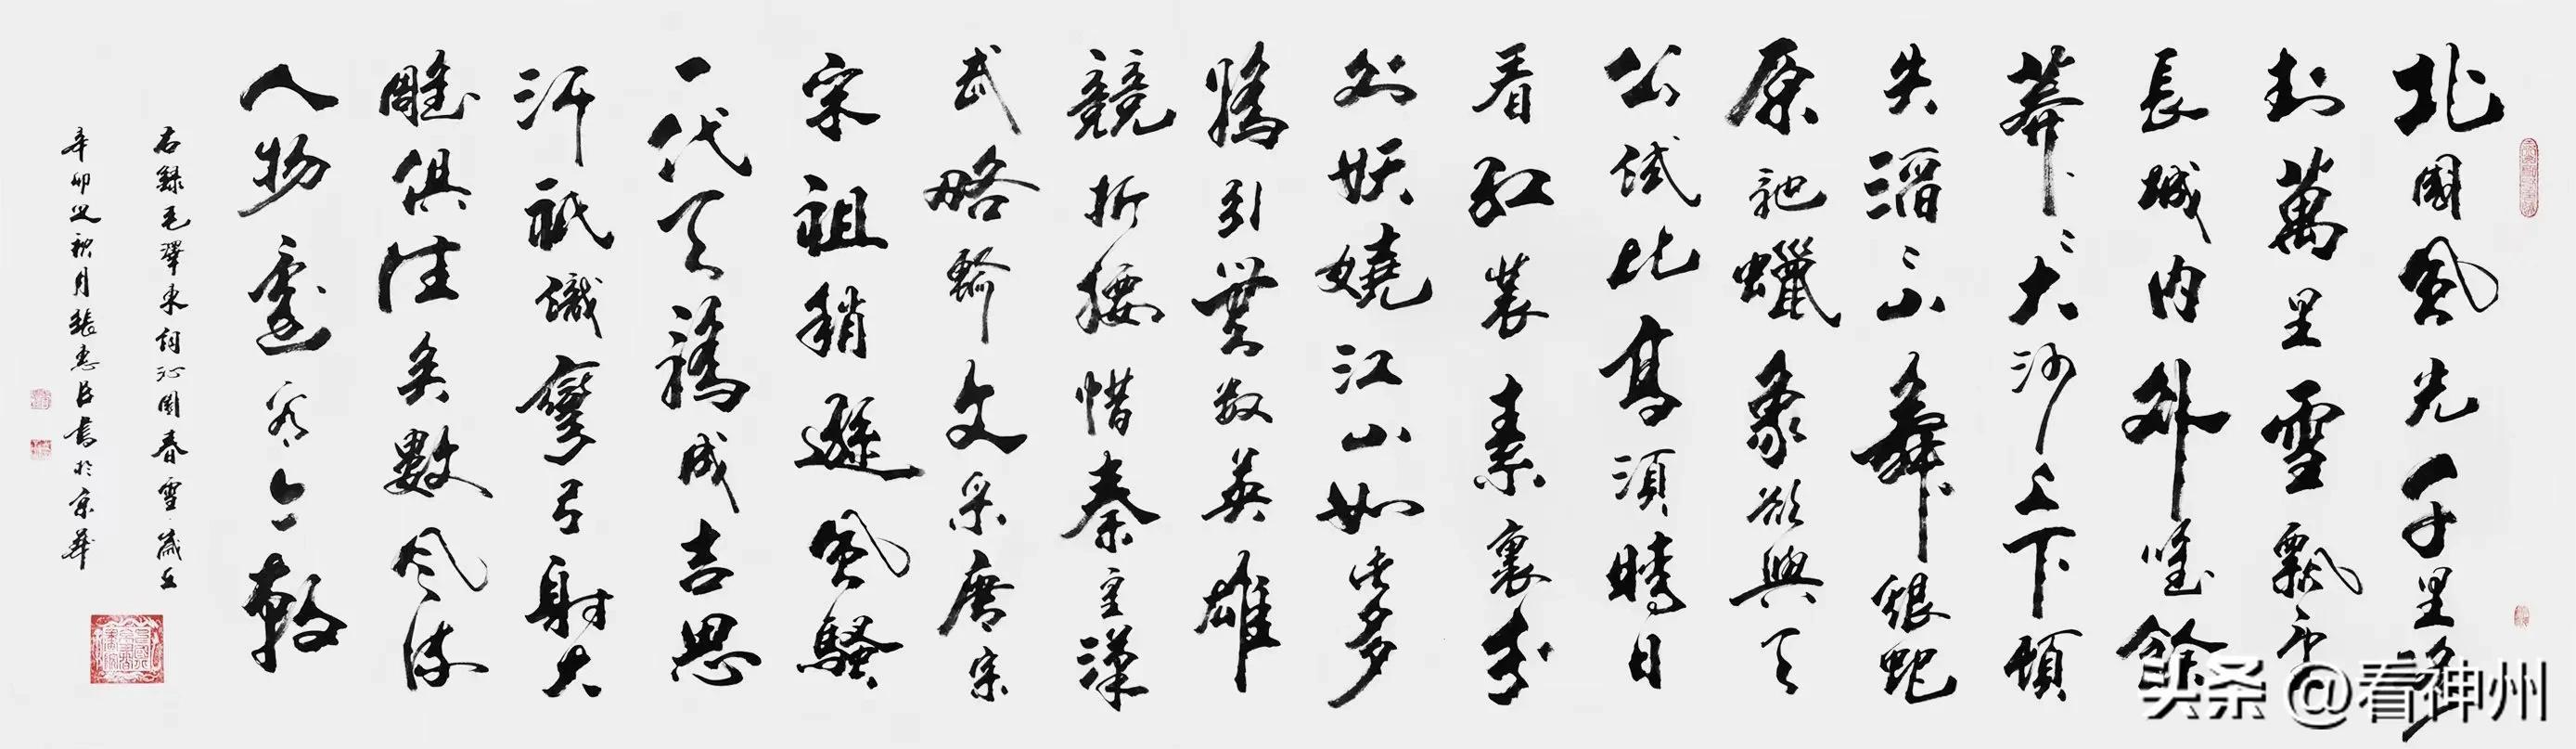 北國風光千里冰
封萬里雪飄望
長城内外唯餘
莽〻大河上下頓
失滔〻山舞銀蛇
原馳蠟象欲與天
公試比高須晴日
看紅裝素裹分
外妖嬈江山如此多
嬌引無数英雄
競折腰惜秦皇漢
武略輸文采唐宗
宋祖稍遜風騷
一代天驕成吉思
汗祇識彎弓射大
雕俱往矣數风流
人物還看今朝
右錄毛澤東詞沁園春雪歲在
辛卯之秋月張惠臣書於京華
头条 @看神州